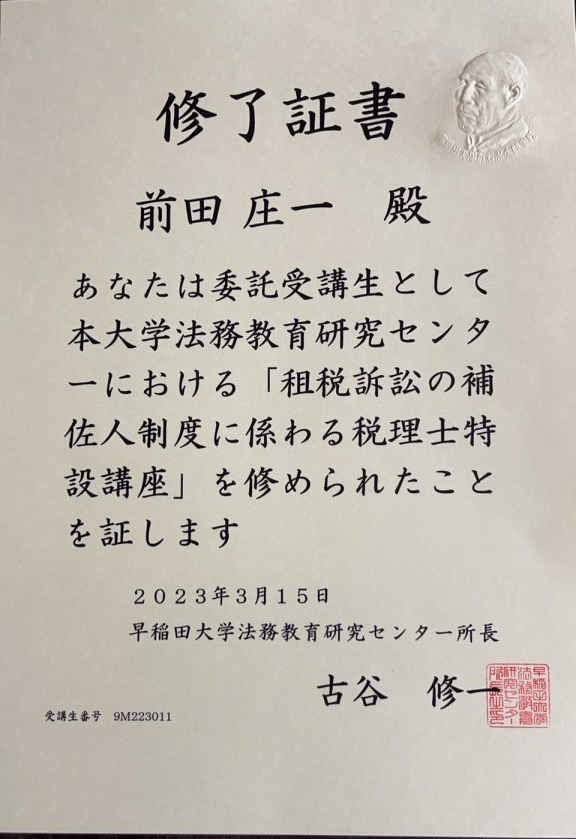 修了証書
前田 庄一　殿
あなたは委託受講生として
本大学法務教育研究センタ
ーにおける「租税訴訟の補
佐人制度に係わる税理士特
設講座」を修められたこと
を証します
２０２３年３月１５日
早稲田大学法務教育研究センター所長
古谷　修一
受講生番号　9M223011